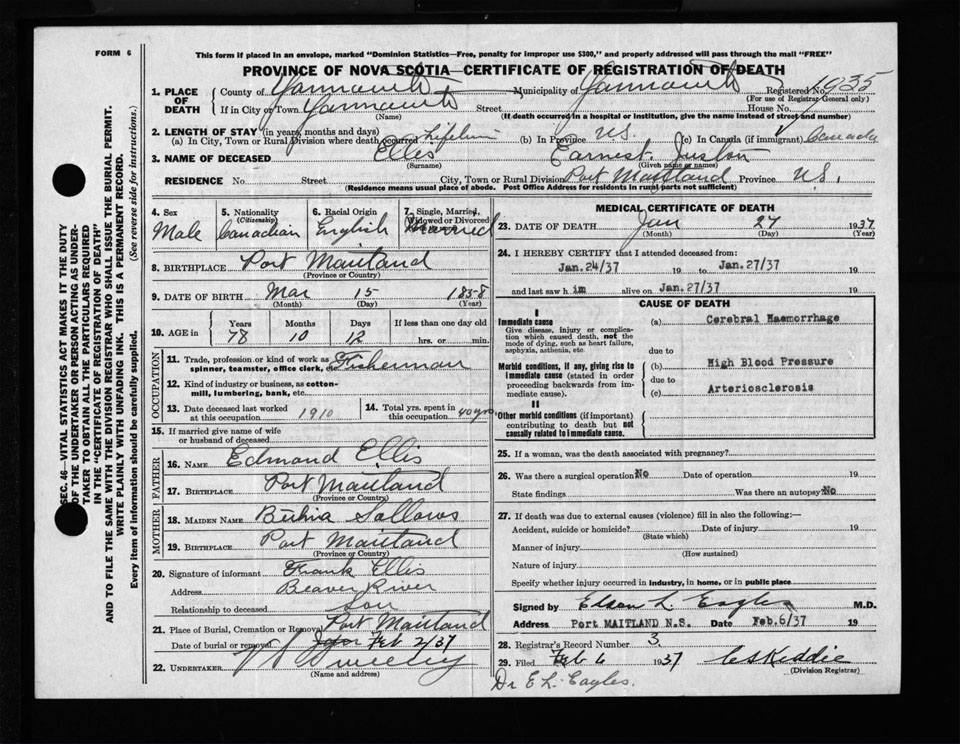 FORM 6
This form if placed in an envelope, marked "Dominion Statistics—Free, penalty for improper use $300," and properly addressed will pass through the mail "FREE"
PROVINCE OF NOVA SCOTIA—CERTIFICATE OF REGISTRATION OF DEATH
SEC. 46—VITAL STATISTICS ACT MAKES IT THE DUTY
OF THE UNDERTAKER OR PERSON ACTING AS UNDER-
TAKER TO OBTAIN ALL THE PARTICULARS REQUIRED
IN THE "CERTIFICATE OF REGISTRATION OF DEATH"
AND TO FILE THE SAME WITH THE DIVISION REGISTRAR WHO SHALL ISSUE THE BURIAL PERMIT.
WRITE PLAINLY WITH UNFADING INK. THIS IS A PERMANENT RECORD.
Every item of information should be carefully supplied. (See reverse side for instructions.)
1. PLACE OF DEATH County of Yarmouth Municipality of Yarmouth Registered No. 1935
(For use of Registrar General only)
If in City or Town Yarmouth Street House No.
(Name) (If death occurred in a hospital or institution, give the name instead of street and number)
2. LENGTH OF STAY (in years, months and days)
(a) In City, Town or Rural Division where death occurred Lifetime (b) In Province N.S. (c) In Canada (if immigrant) Canada
3. NAME OF DECEASED Ellis Earnest
(Surname) (Given name or names)
RESIDENCE No. Street City, Town or Rural Division Port Maitland Province N.S.
(Residence means usual place of abode. Post Office Address for residents in rural parts not sufficient)
4. Sex Male
5. Nationality (Citizenship) Canadian
6. Racial Origin English
7. Single, Married, Widowed or Divorced Married
8. BIRTHPLACE Port Maitland
(Province or Country)
9. DATE OF BIRTH Mar 15 1858
(Month) (Day) (Year)
10. AGE in Years Months Days If less than one day old
78 10 12 hrs. or min.
OCCUPATION
11. Trade, profession or kind of work as spinner, teamster, office clerk, etc. Fisherman
12. Kind of industry or business, as cotton-mill, lumbering, bank, etc.
13. Date deceased last worked at this occupation 1910
14. Total yrs. spent in this occupation 40 yrs
15. If married give name of wife or husband of deceased
FATHER
16. NAME Edmond Ellis
17. BIRTHPLACE Port Maitland
(Province or Country)
MOTHER
18. MAIDEN NAME Sollows
19. BIRTHPLACE Port Maitland
(Province or Country)
20. Signature of informant Frank Ellis
Address Beaver River
Relationship to deceased Son
21. Place of Burial, Cremation or Removal Port Maitland
Date of burial or removal Feb 2/37
22. UNDERTAKER Sweeny
(Name and address)
MEDICAL CERTIFICATE OF DEATH
23. DATE OF DEATH Jan 27 1937
(Month) (Day) (Year)
24. I HEREBY CERTIFY that I attended deceased from:
Jan.24/37 19 to Jan.27/37 19
and last saw him alive on Jan.27/37 19
CAUSE OF DEATH
I
Immediate cause
Give disease, injury or complication which caused death, not the mode of dying, such as heart failure, asphyxia, asthenia, etc.
(a) Cerebral Haemorrhage
due to
Morbid conditions, if any, giving rise to immediate cause (stated in order proceeding backwards from immediate cause).
(b) High Blood Pressure
due to
(c) Arteriosclerosis
II
Other morbid conditions (if important) contributing to death but not causally related to immediate cause.
25. If a woman, was the death associated with pregnancy?
26. Was there a surgical operation No Date of operation 19
State findings Was there an autopsy No
27. If death was due to external causes (violence) fill in also the following:—
Accident, suicide or homicide? Date of injury 19
(State which)
Manner of injury
(How sustained)
Nature of injury
Specify whether injury occurred in industry, in home, or in public place
Signed by L. Eagles M.D.
Address Port MAITLAND N.S. Date Feb.6/37 19
28. Registrar's Record Number 3
29. Filed Feb 6 1937
(Division Registrar)
Dr E. L. Eagles.